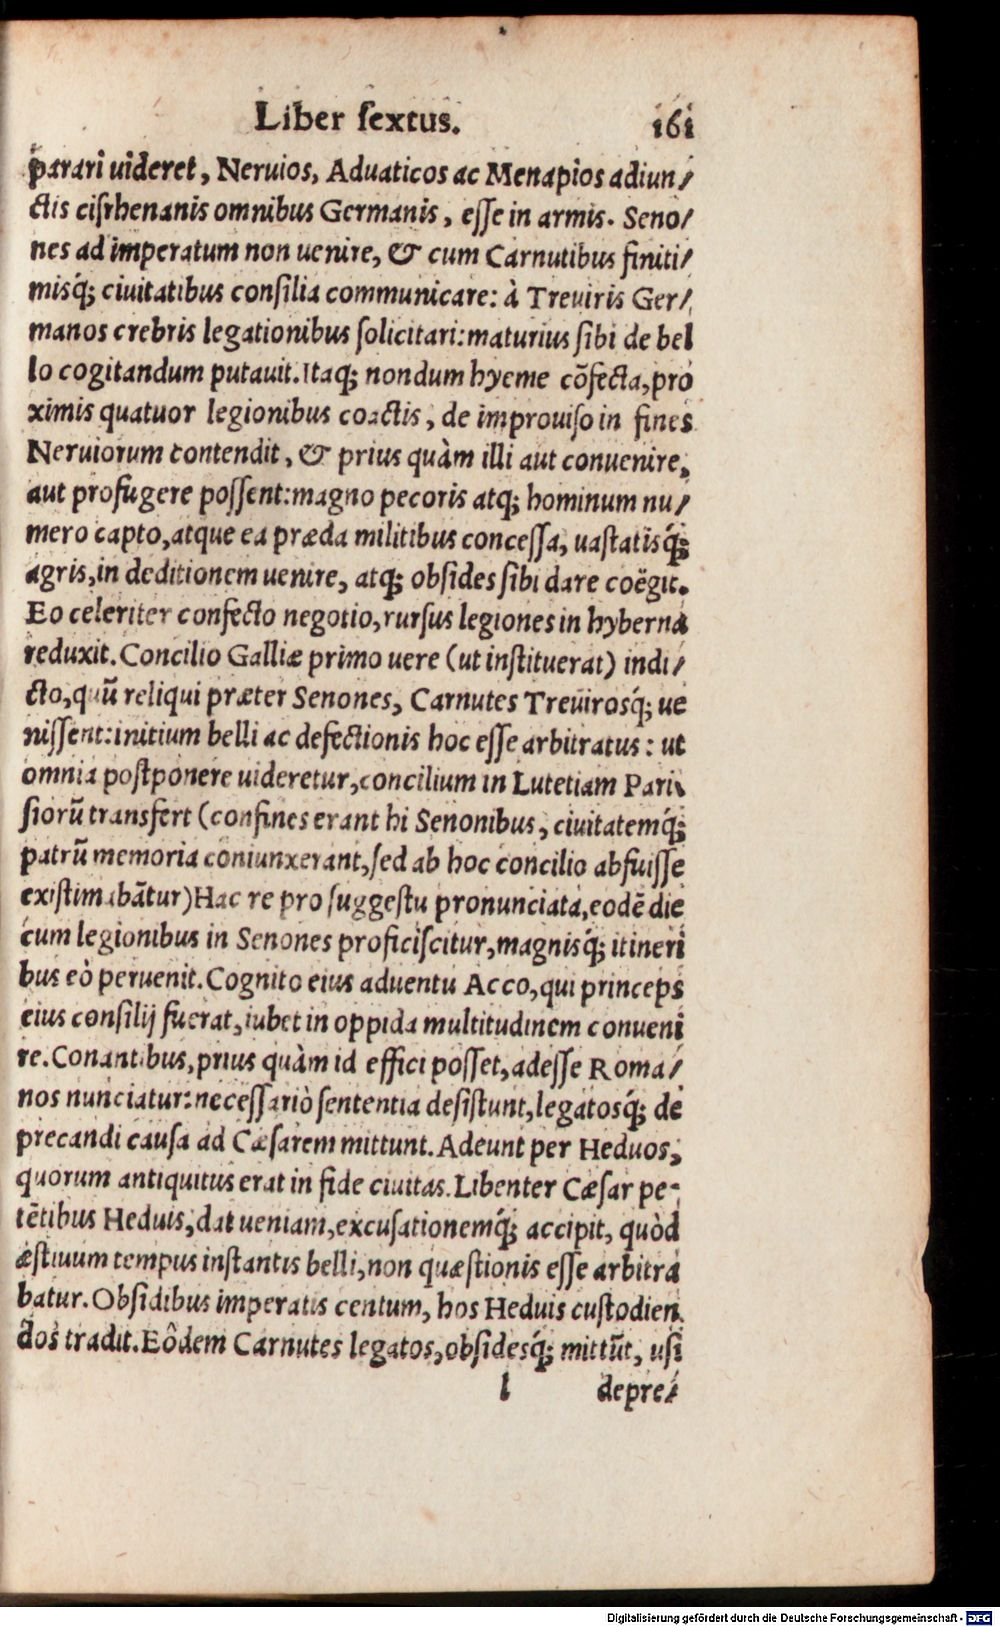 Liber ſextus. 161
parari uideret, Neruios, Aduaticos ac Menapios adiun/
ctis ciſrhenanis omnibus Germanis, eſſe in armis. Seno/
nes ad imperatum non uenire, & cum Carnutibus finiti/
misq́; ciuitatibus conſilia communicare: à Treuiris Ger/
manos crebris legationibus ſolicitari: maturius ſibi de bel
lo cogitandum putauit. Itaq; nondum hyeme cõfecta, pro
ximis quatuor legionibus coactis, de improuiſo in fines
Neruiorum contendit, & prius quàm illi aut conuenire,
aut profugere poſſent: magno pecoris atq; hominum nu/
mero capto, atque ea præda militibus conceſſa, uaſtatisq́;
agris, in deditionem uenire, atq; obſides ſibi dare coëgit.
Eo celeriter confecto negotio, rurſus legiones in hyberna
reduxit. Concilio Galliæ primo uere (ut inſtituerat) indi/
cto, quũ reliqui præter Senones, Carnutes Treuirosq́; ue
niſſent: initium belli ac defectionis hoc eſſe arbitratus: ut
omnia poſtponere uideretur, concilium in Lutetiam Pari
ſiorũ transfert (confines erant hi Senonibus, ciuitatemq́;
patrũ memoria coniunxerant, ſed ab hoc concilio abfuiſſe
exiſtimabãtur) Hac re pro ſuggeſtu pronunciata, eodẽ die
cum legionibus in Senones proficiſcitur, magnisq́; itineri
bus eò peruenit. Cognito eius aduentu Acco, qui princeps
eius conſilij fuerat, iubet in oppida multitudinem conueni
re. Conantibus, prius quàm id effici poſſet, adeſſe Roma/
nos nunciatur: neceſſariò ſententia deſiſtunt, legatosq́; de
precandi cauſa ad Cæſarem mittunt. Adeunt per Heduos,
quorum antiquitus erat in fide ciuitas. Libenter Cæſar pe-
tẽtibus Heduis, dat ueniam, excuſationemq́; accipit, quòd
æſtiuum tempus inſtantis belli, non quæſtionis eſſe arbitra
batur. Obſidibus imperatis centum, hos Heduis cuſtodien
dos tradit. Eôdem Carnutes legatos, obſidesq́; mittũt, uſi
l depre/
Digitalisierung gefördert durch die Deutsche Forschungsgemeinschaft - DFG